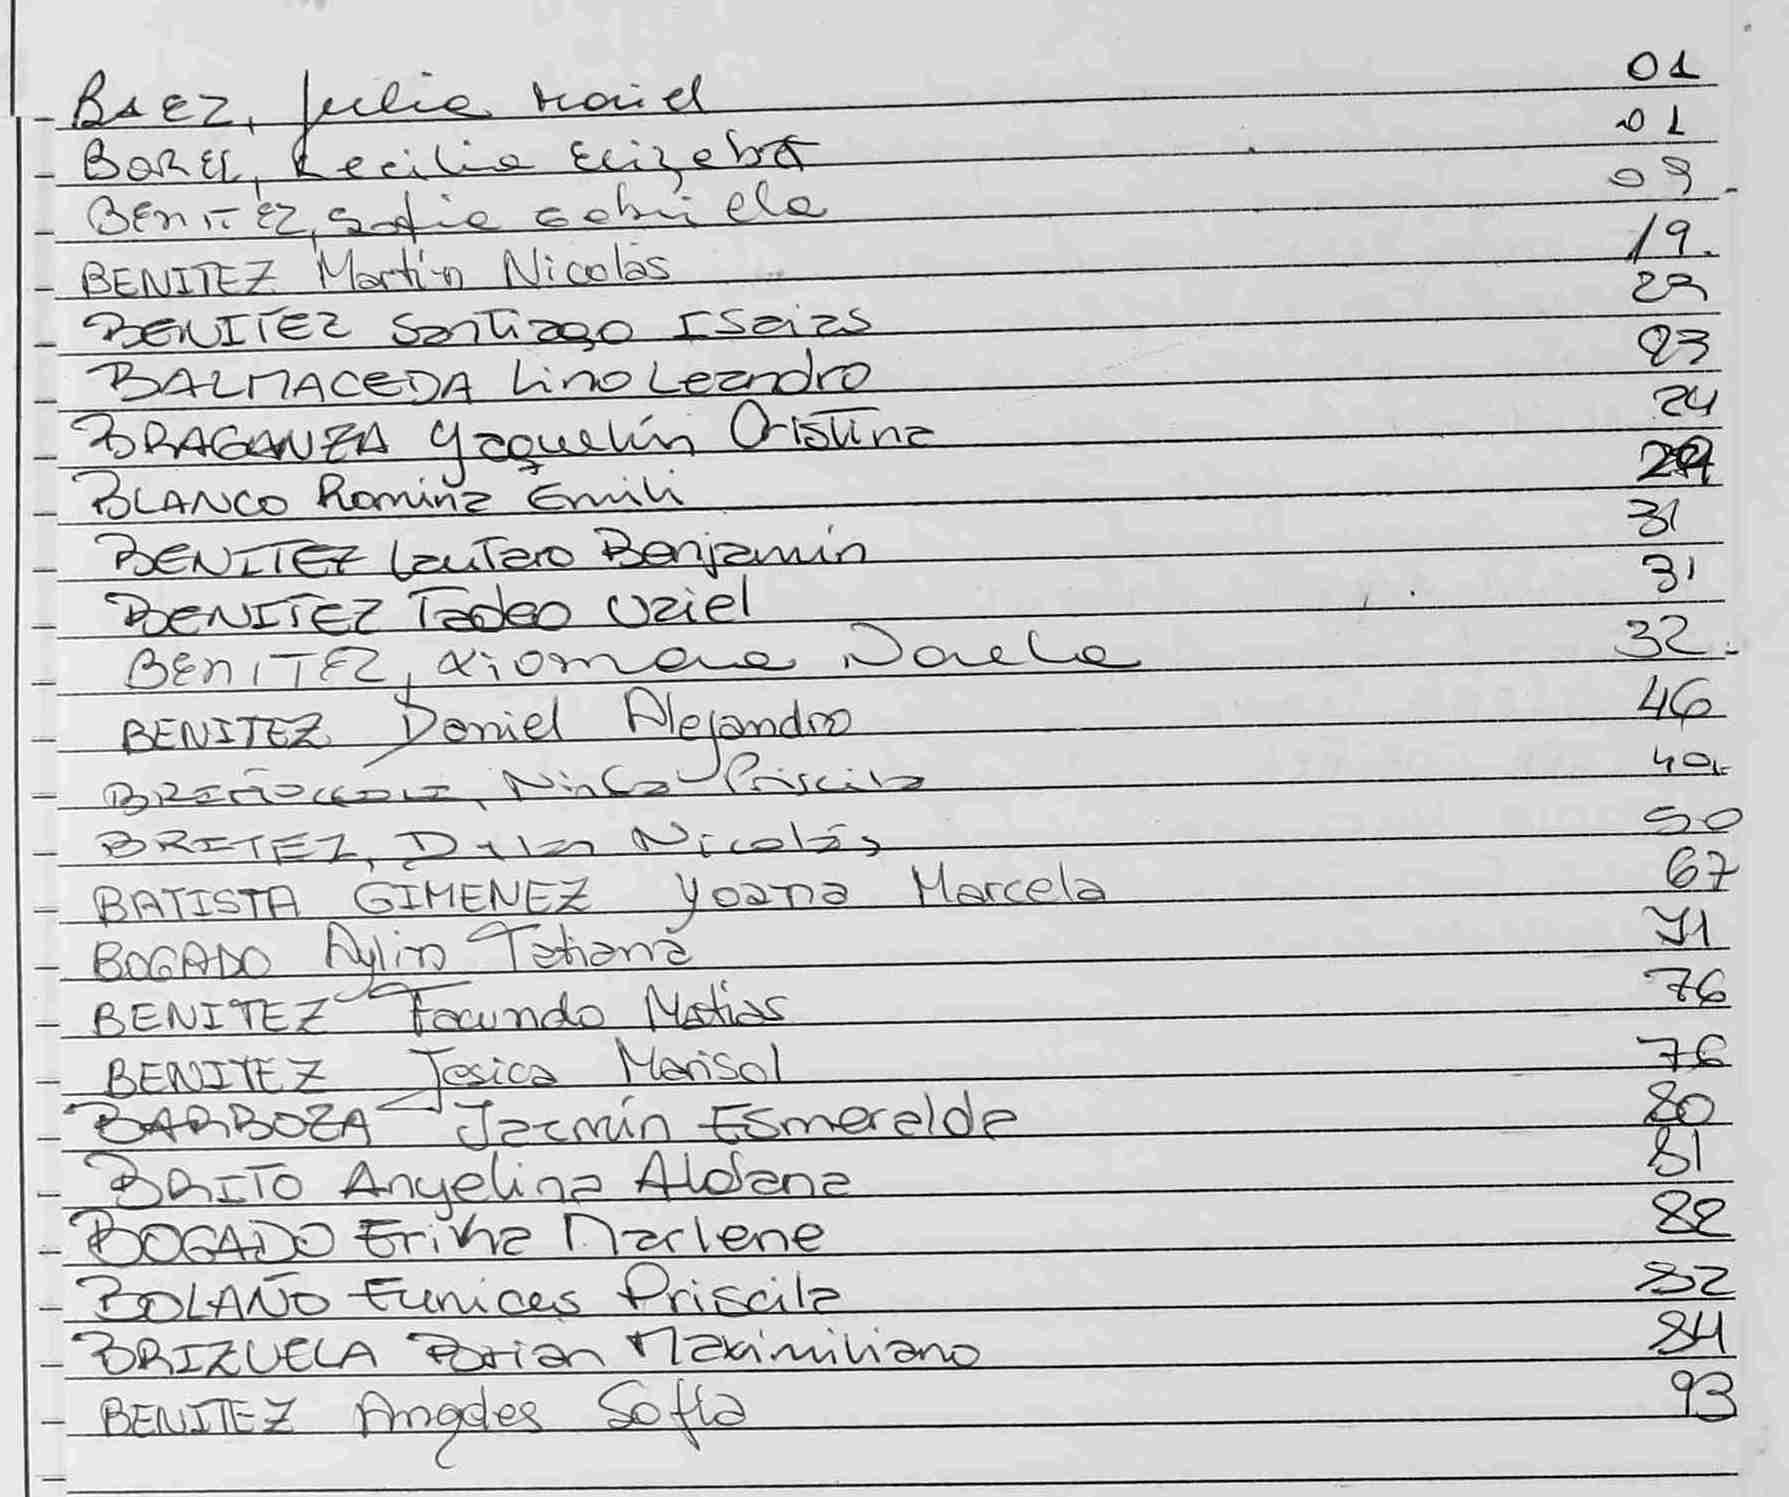 BAEZ, Julia Mariel 01
BOREL, Cecilia Elizabet 01
BENITEZ, Sofia Gabriela 09
BENITEZ Martín Nicolás 19
BENITEZ Santiago Isaias 22
BALMACEDA Lino Leandro 23
BRAGANZA Yaquelín Cristina 24
BLANCO Romina Emili 29
BENITEZ Lautaro Benjamín 31
BENITEZ Tadeo Uziel 31
BENITEZ, Xiomara Naela 32
BENITEZ Daniel Alejandro 46
Priscila
BRITEZ, Dylan Nicolás 50
BATISTA GIMENEZ Yoana Marcela 67
BOGADO Aylin Tatiana 71
BENITEZ Facundo Matias 76
BENITEZ Jesica Marisol 76
BARBOZA Jazmín Esmeralda 80
BRITO Angelina Aldana 81
BOGADO Erika Marlene 82
BOLAÑO Eunices Priscila 82
BRIZUELA Brian Maximiliano 84
BENITEZ Angeles Sofía 93